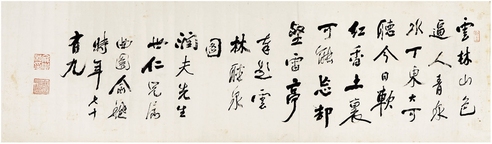 雲林山色
逼人青泉
水丁東大可
聽今日軟
紅香土裏
可能忘却
壑雷亭
奉題雲
林聽泉
圖
潤夫先生
世仁兄屬
曲園俞樾
時年七十
有九